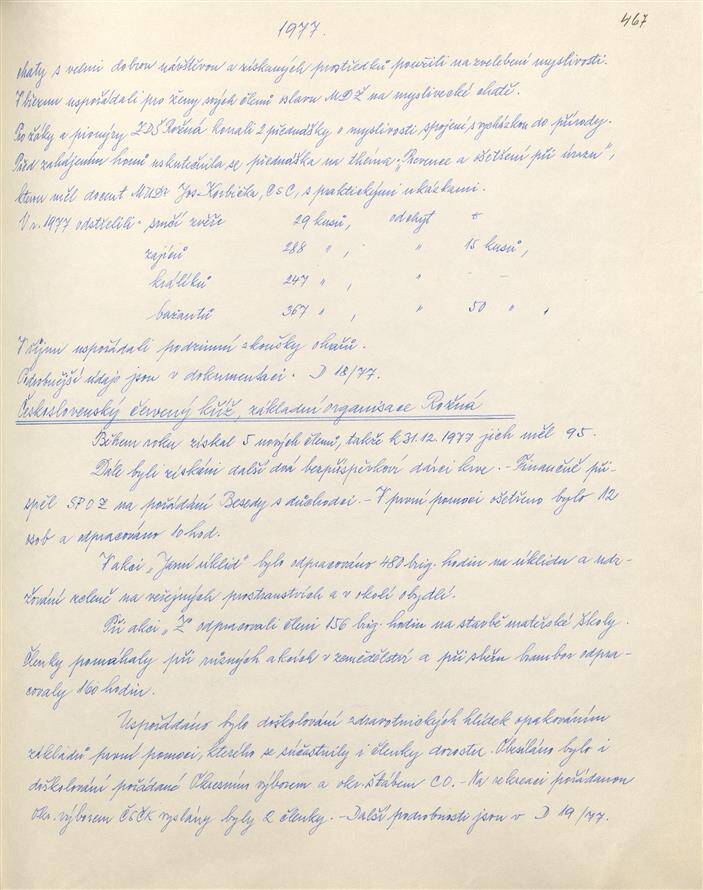 1977.
467
chaty s velmi dobrou návštěvou a získaných prostředků použili na zvelebení myslivosti.
V březnu uspořádali pro ženy svých členů oslavu MDŽ na myslivecké chatě.
Pro žáky a pionýry ZDŠ Rožná konali 2 přednášky o myslivosti spojené s vycházkou do přírody.
Před zahájením honů uskutečnila se přednáška na théma: „Prevence a ošetření při úrazu",
kterou měl docent MUDr Jos. CSC, s praktickými ukázkami.
V r. 1977 odstřelili - srnčí zvěře 29 kusů, odchyt
zajíců 288 " , " 15 kusů,
králíků 247 " , " - -
bažantů 367 " , " 50 " .
V říjnu uspořádali podzimní zkoušky ohařů.
Podrobnější údaje jsou v dokumentaci. D 18/77.
Československý červený kříž, základní organisace Rožná
Během roku získal 5 nových členů, takže k 31.12.1977 jich měl 95.
Dále byli získáni další dva bezpříspěvkoví dárci krve. - Finančně při-
spěl SPOZ na pořádání Besedy s důchodci. - V první pomoci ošetřeno bylo 12
osob a odpracováno 10 hod.
V akci „Jarní úklid" bylo odpracováno 480 brig. hodin na úklidu a udr-
žování zeleně na veřejných prostranstvích a v okolí obydlí.
Při akci „Z" odpracovali členi 156 brig. hodin na stavbě mateřské školy.
Členky pomáhaly při různých akcích v zemědělství a při sběru brambor odpra-
covaly 160 hodin.
Uspořádáno bylo doškolování zdravotnických hlídek opakováním
základů první pomoci, kterého se súčastnily i členky dorostu. Obesíláno bylo i
doškolování pořádané Okresním výborem a okr. štábem CO. - Na rekreaci pořádanou
Okr. výborem ČSČK vyslány byly 2 členky. - Další podrobnosti jsou v D 19/77.